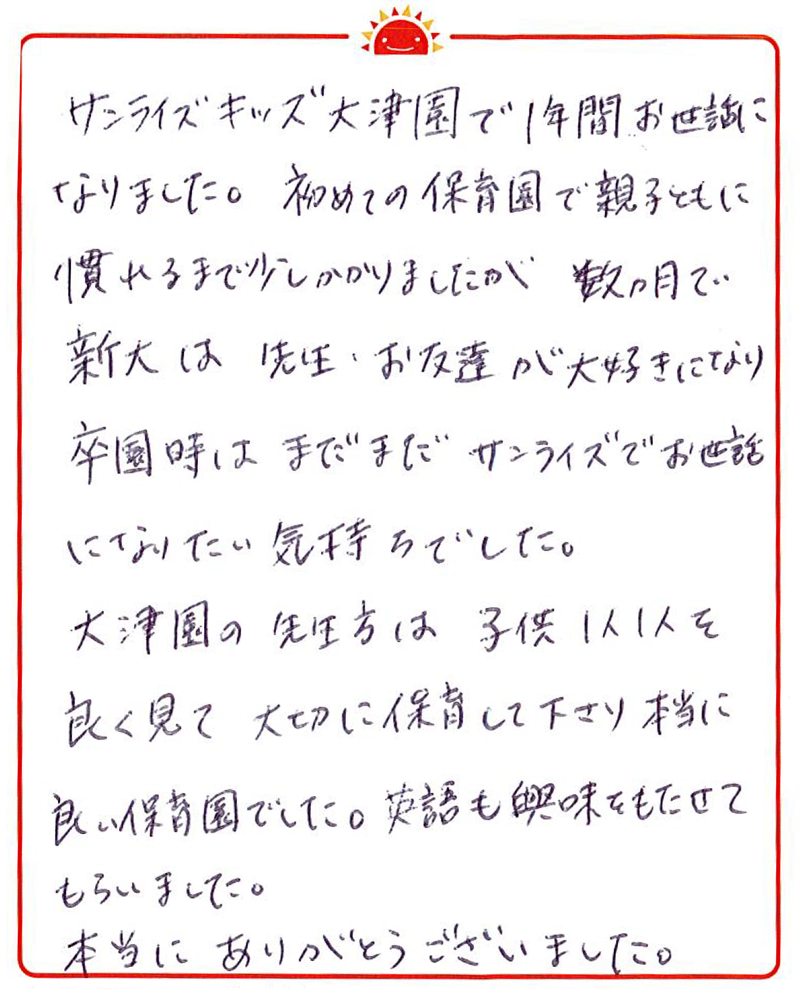 サンライズキッズ大津園で1年間お世話に
なりました。初めての保育園で親子ともに
慣れるまで少しかかりましたが 数ヵ月で
新大は 先生・お友達が大好きになり
卒園時は まだまだ サンライズでお世話
になりたい気持ちでした。
大津園の 先生方は 子供1人1人を
良く見て 大切に保育して下さり本当に
良い保育園でした。英語も興味をもたせて
もらいました。
本当に ありがとうございました。